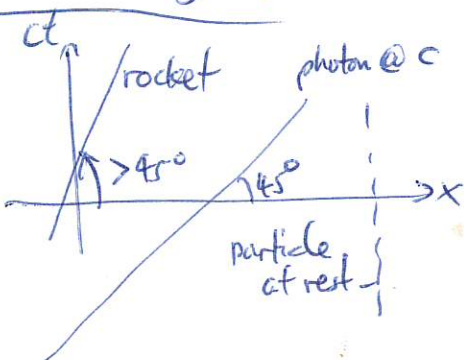 ct
rocket
photon @ c
>45°
45°
x
particle
at rest